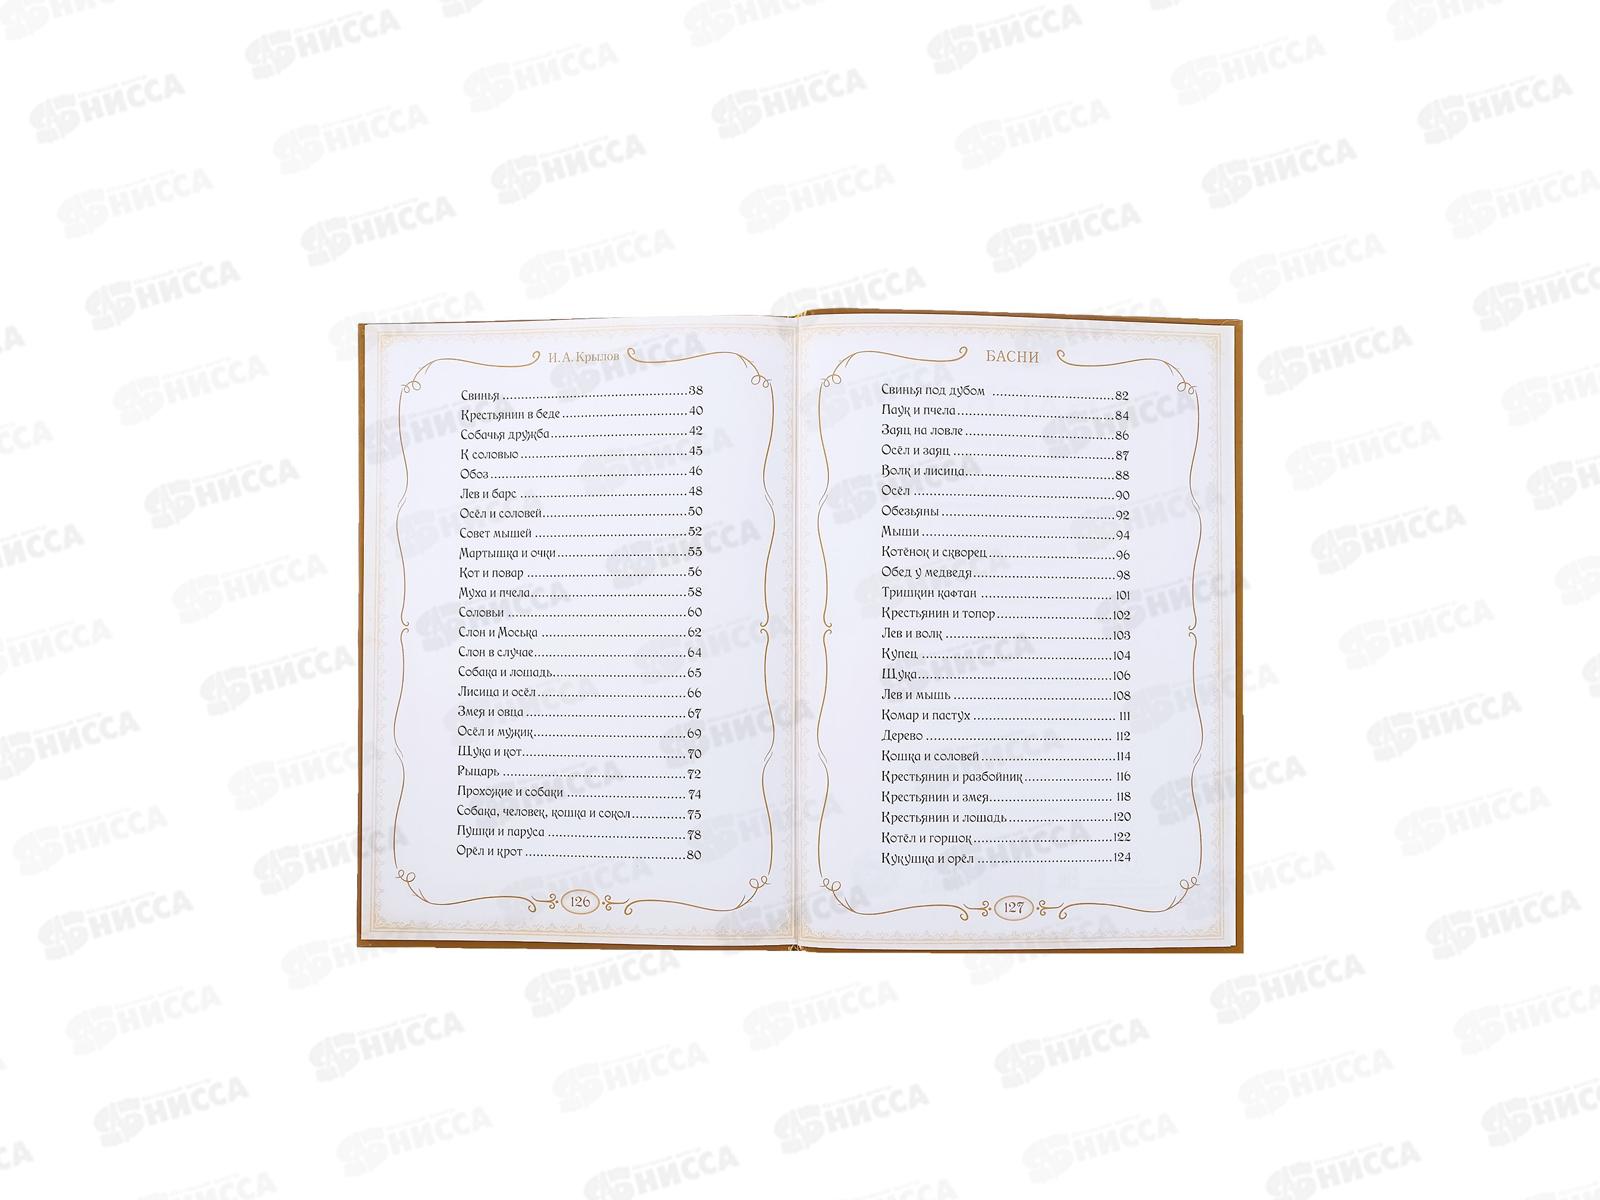 И. А. Крылов
Свинья ........ 38
Крестьянин в беде ........ 40
Собачья дружба ........ 42
К соловью ........ 45
Обоз ........ 46
Лев и барс ........ 48
Осёл и соловей ........ 50
Совет мышей ........ 52
Мартышка и очки ........ 55
Кот и повар ........ 56
Муха и пчела ........ 58
Соловьи ........ 60
Слон и Моська ........ 62
Слон в случае ........ 64
Собака и лошадь ........ 65
Лисица и осёл ........ 66
Змея и овца ........ 67
Осёл и мужик ........ 69
Щука и кот ........ 70
Рыцарь ........ 72
Прохожие и собаки ........ 74
Собака, человек, кошка и сокол ........ 75
Пушки и паруса ........ 78
Орёл и крот ........ 80
126
БАСНИ
Свинья под дубом ........ 82
Паук и пчела ........ 84
Заяц на ловле ........ 86
Осёл и заяц ........ 87
Волк и лисица ........ 88
Осёл ........ 90
Обезьяны ........ 92
Мыши ........ 94
Котёнок и скворец ........ 96
Обед у медведя ........ 98
Тришкин кафтан ........ 101
Крестьянин и топор ........ 102
Лев и волк ........ 103
Купец ........ 104
Щука ........ 106
Лев и мышь ........ 108
Комар и пастух ........ 111
Дерево ........ 112
Кошка и соловей ........ 114
Крестьянин и разбойник ........ 116
Крестьянин и змея ........ 118
Крестьянин и лошадь ........ 120
Котёл и горшок ........ 122
Кукушка и орёл ........ 124
127
НИССА